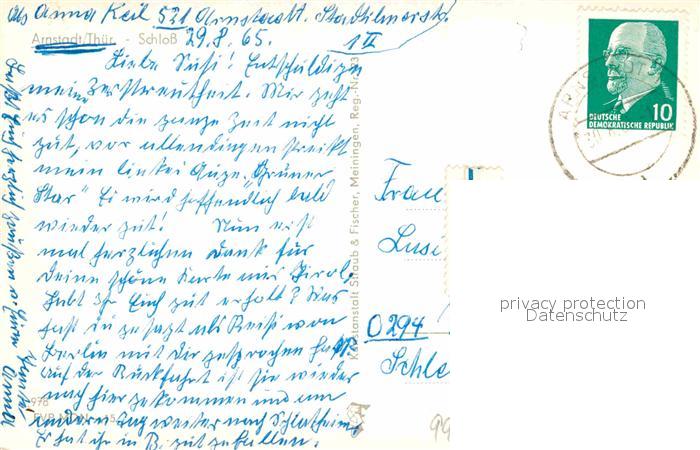 Abs Anna Keil 521 Arnstadt. Stadtilmerstr.
1 II
Arnstadt/Thür. - Schloß 29.8.65.
Liebe Susi! Entschuldige
meine Zerstreutheit. Mir geht
es schon die ganze Zeit nicht
gut, vor allendingen streikt
mein linkes Auge. „Grüner
Star“ Es wird hoffendlich bald
wieder gut! Nun erst
mal herzlichen Dank für
Deine schöne Karte aus Tirol,
habt Ihr Euch gut erholt? Was
hast du gesagt als Resi von
Berlin mit dir gesprochen hat
auf der Rückfahrt ist sie wieder
nach hier gekommen und am
andern Tag weiter nach Schlotheim
Es hat ihr in B. gut gefallen.
Kunstanstalt Straub & Fischer, Meiningen, Reg.-Nr.
DEUTSCHE
DEMOKRATISCHE REPUBLIK
10
Frau
0294
Schle
privacy protection
Datenschutz